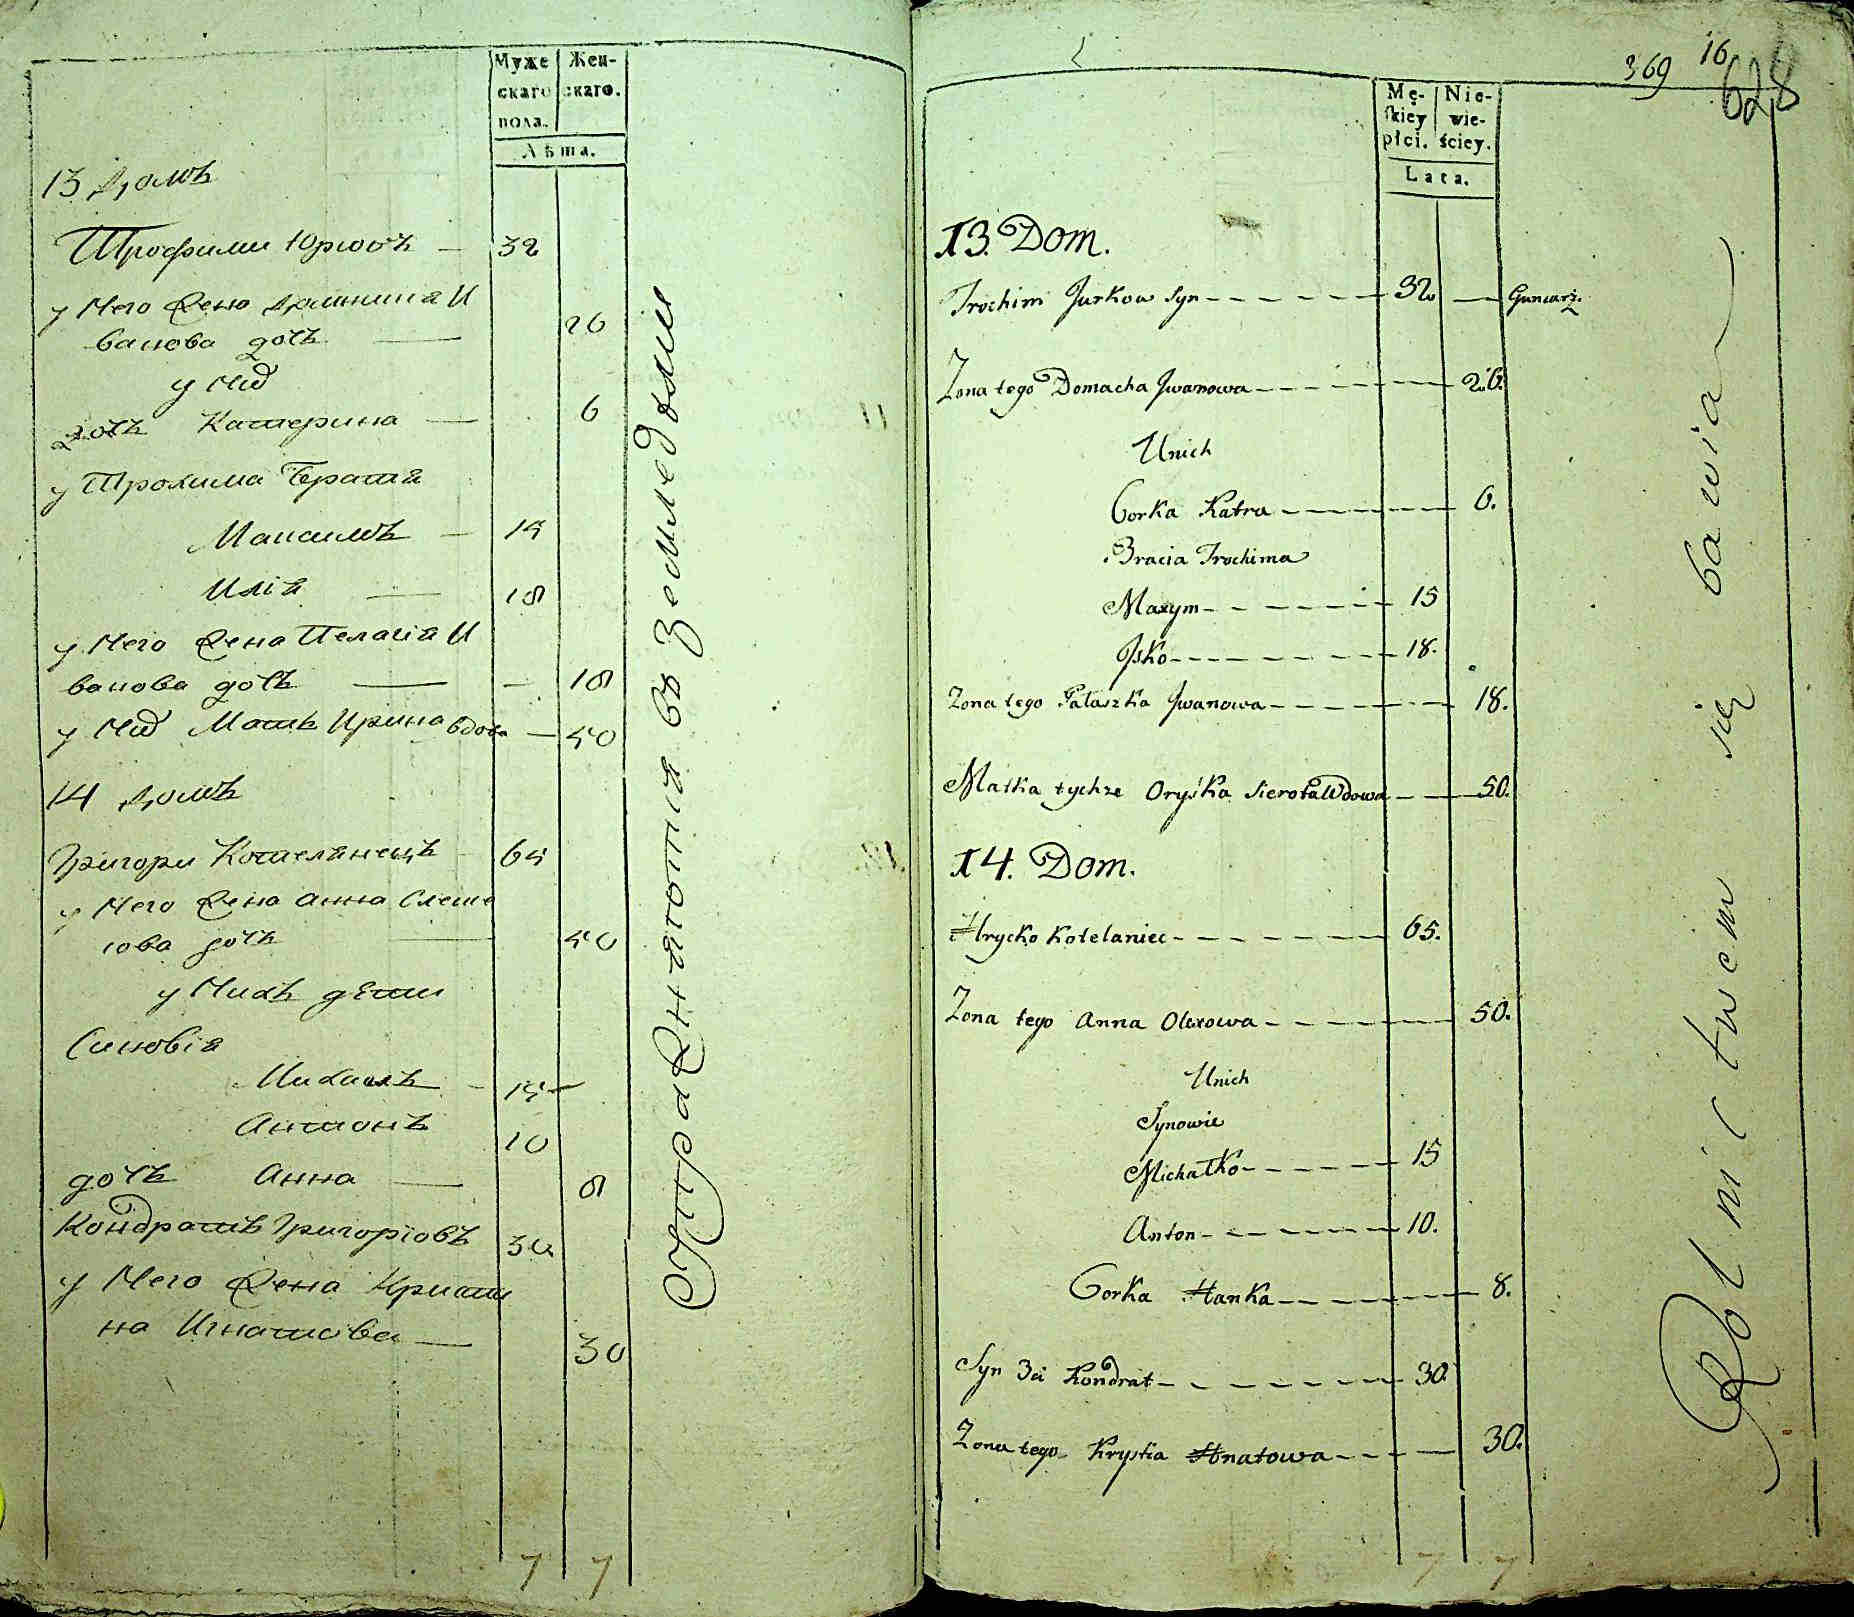 Муже
скаго
пола.
Жен-
скаго.
Лѣта.
13 домъ
Трофими Юрковъ — 32
у Него Жена Домникия И
ванова дочь — 26
у Них
дочь Катерина — 6
у Трохима Братья
Максимъ — 15
Илія — 18
у Него Жена Пелагія И
ванова дочь — 18
у Них Мать Ирина вдова — 50
14 домъ
Григори Котелянецъ — 65
у Него Жена Анна Слеше
ова дочь — 50
у Нихъ дети
Синовія
Михаилъ — 15
Антонъ 10
дочь Анна — 8
Кондратъ Григоріовъ 30
у Него Жена Христи
на Игнатова — 30
7 7
Упражняются въ Земледѣліи
369 16
628
Mę-
skiey
płci.
Nie-
wie-
ściey.
Lata.
13. Dom.
Trochim Jurkow Syn — 32 — Guncarz.
Zona tego Domacha Jwanowa — 26.
Unich
Corka Katra — 6.
Bracia Trochima
Maxym — 15
Jsko — 18.
Zona tego Pałaszka Jwanowa — 18.
Matka tychże Oryśka Sierota Wdowa — 50.
14. Dom.
Hrycko Kotelaniec — 65.
Zona tego Anna Olexowa — 50.
Unich
Synowie
Michałko — 15
Anton — 10.
Corka Hanka — 8.
Syn 3ci Kondrat — 30.
Zona tego Krystia Hnatowa — 30.
7 7
Rolnictwem się bawia